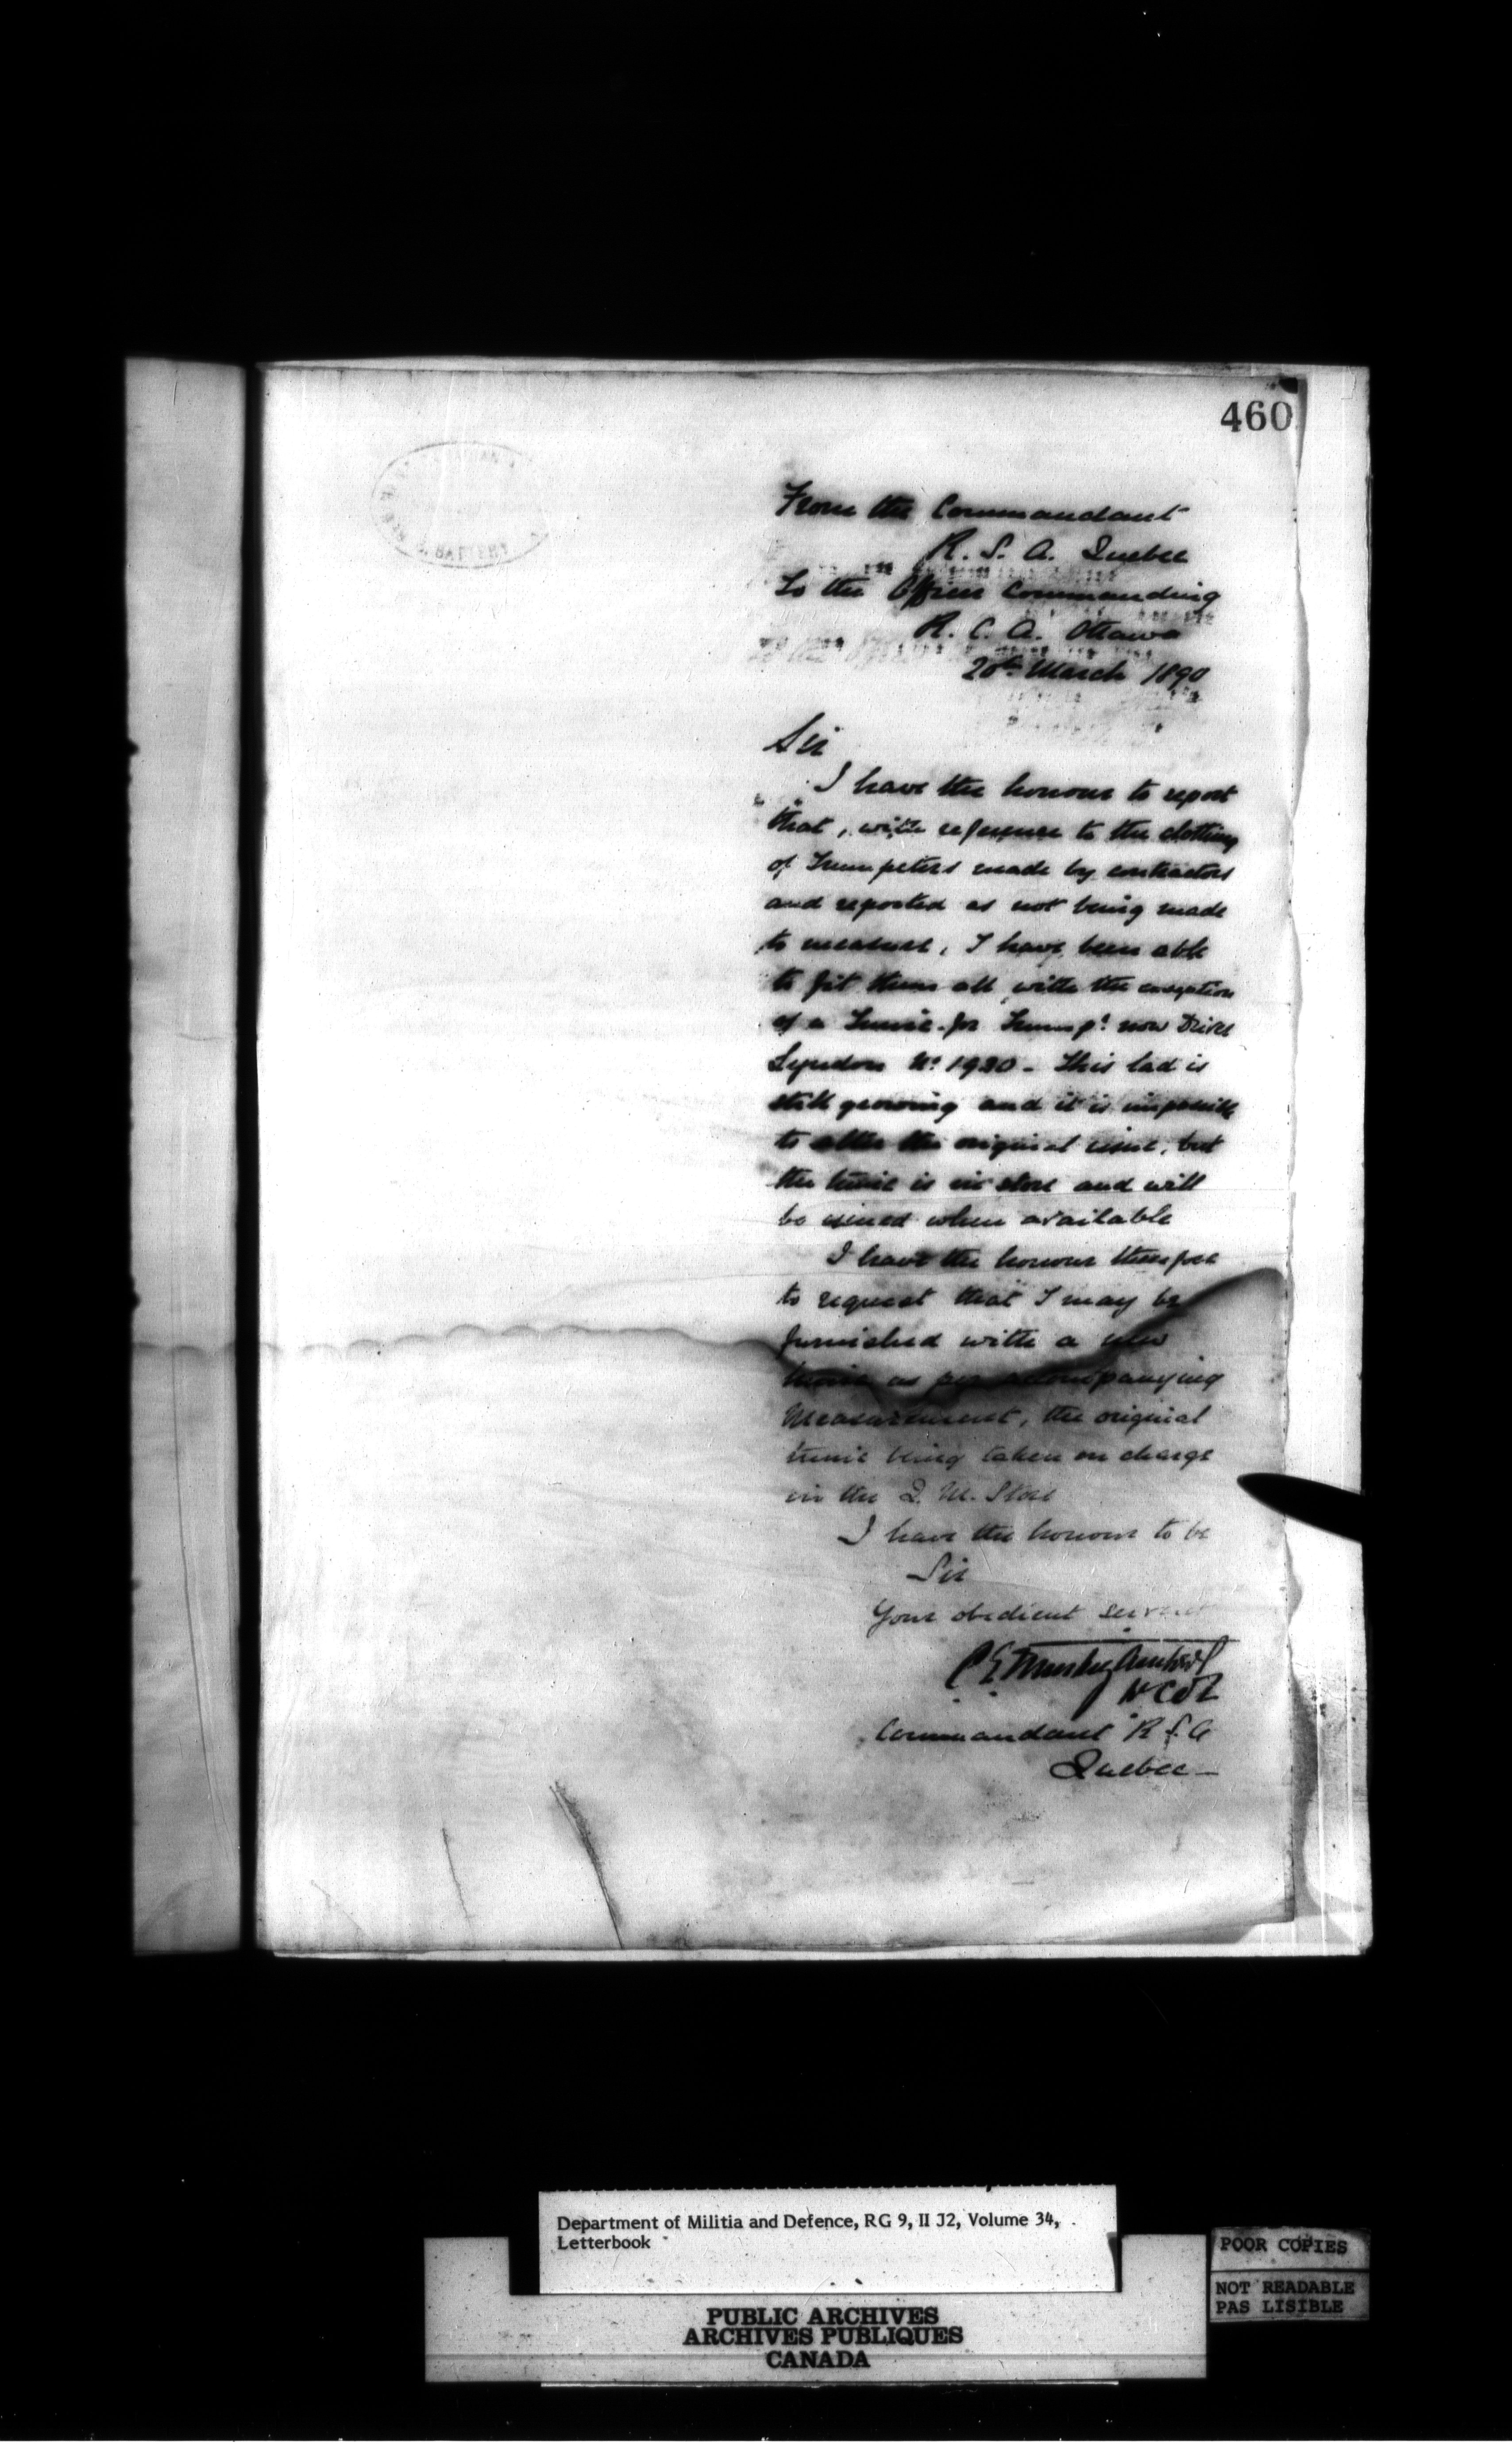 460
BATTERY
From the Commandant
R. S. A. Quebec
To the Officer Commanding
R. C. A. Ottawa
20th March 1890
Sir
I have the honour to report
that, with reference to the clothing
of Trumpeters made by contractors
and reported as not being made
to measure, I have been able
to fit them all with the exception
of a Tunic for Trumpr now Driver
No 1930 - This lad is
still growing and it is impossible
to alter the original issue, but
the tunic is in store and will
be issued when available
I have the honour therefore
to request that I may be
furnished with a new
tunic as per accompanying
Measurement, the original
tunic being taken on charge
in the Q. M. Store
I have the honour to be
Sir
Your obedient servant
Commandant R S A
Quebec -
Department of Militia and Defence, RG 9, II J2, Volume 34,
Letterbook
POOR COPIES
NOT READABLE
PAS LISIBLE
PUBLIC ARCHIVES
ARCHIVES PUBLIQUES
CANADA